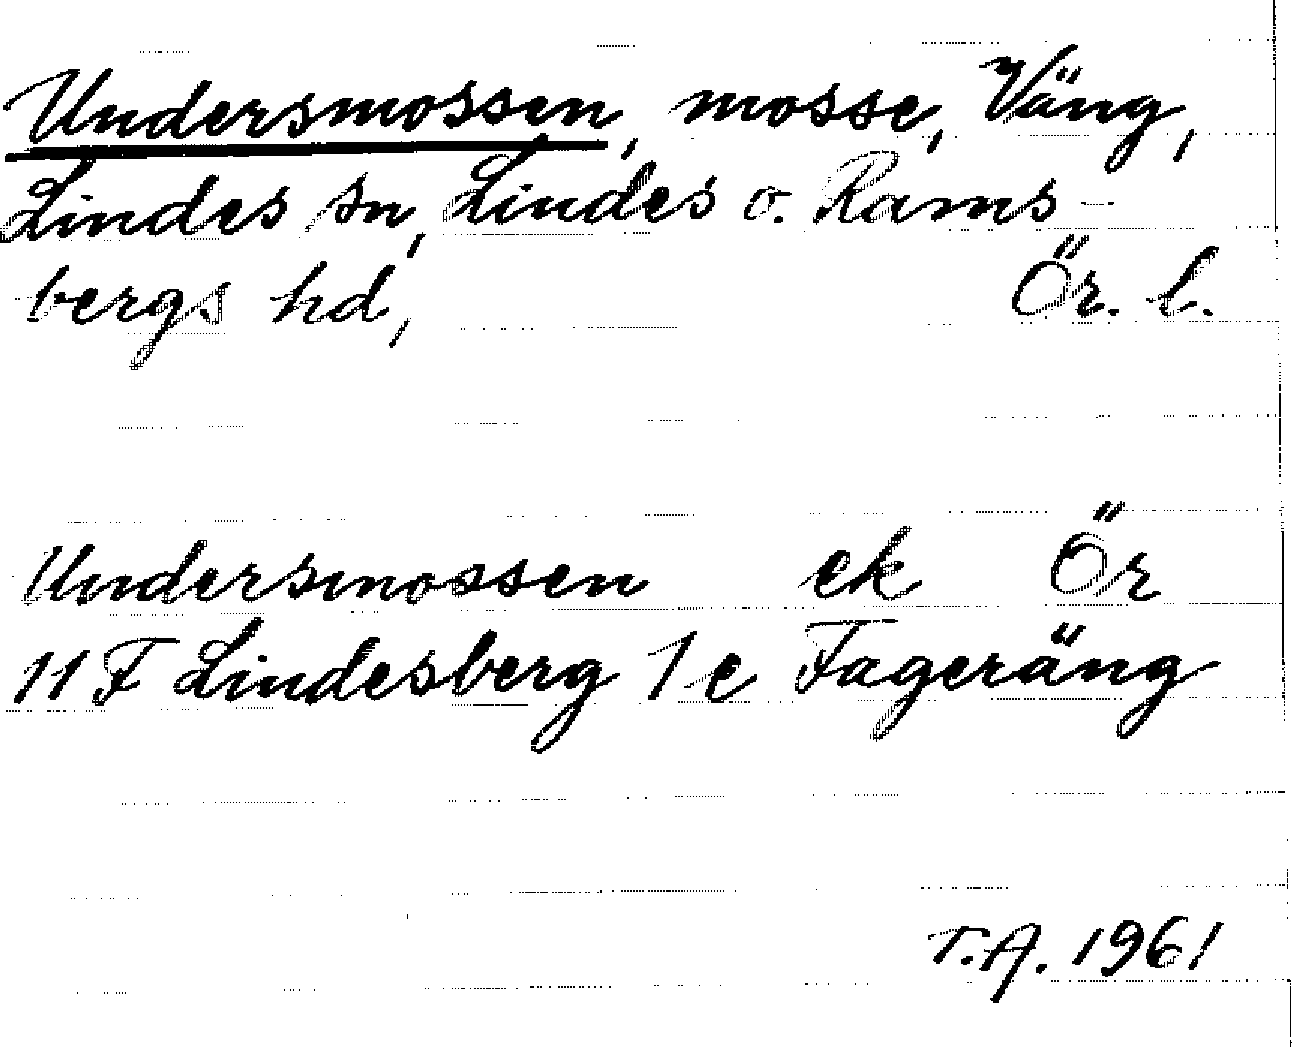 Undersmossen, mosse, Väng,
Lindes sn, Lindes o. Rams-
bergs hd, Ör. l.
Undersmossen ek Ör
11 F Lindesberg 1 e Fageräng
T.A. 1961